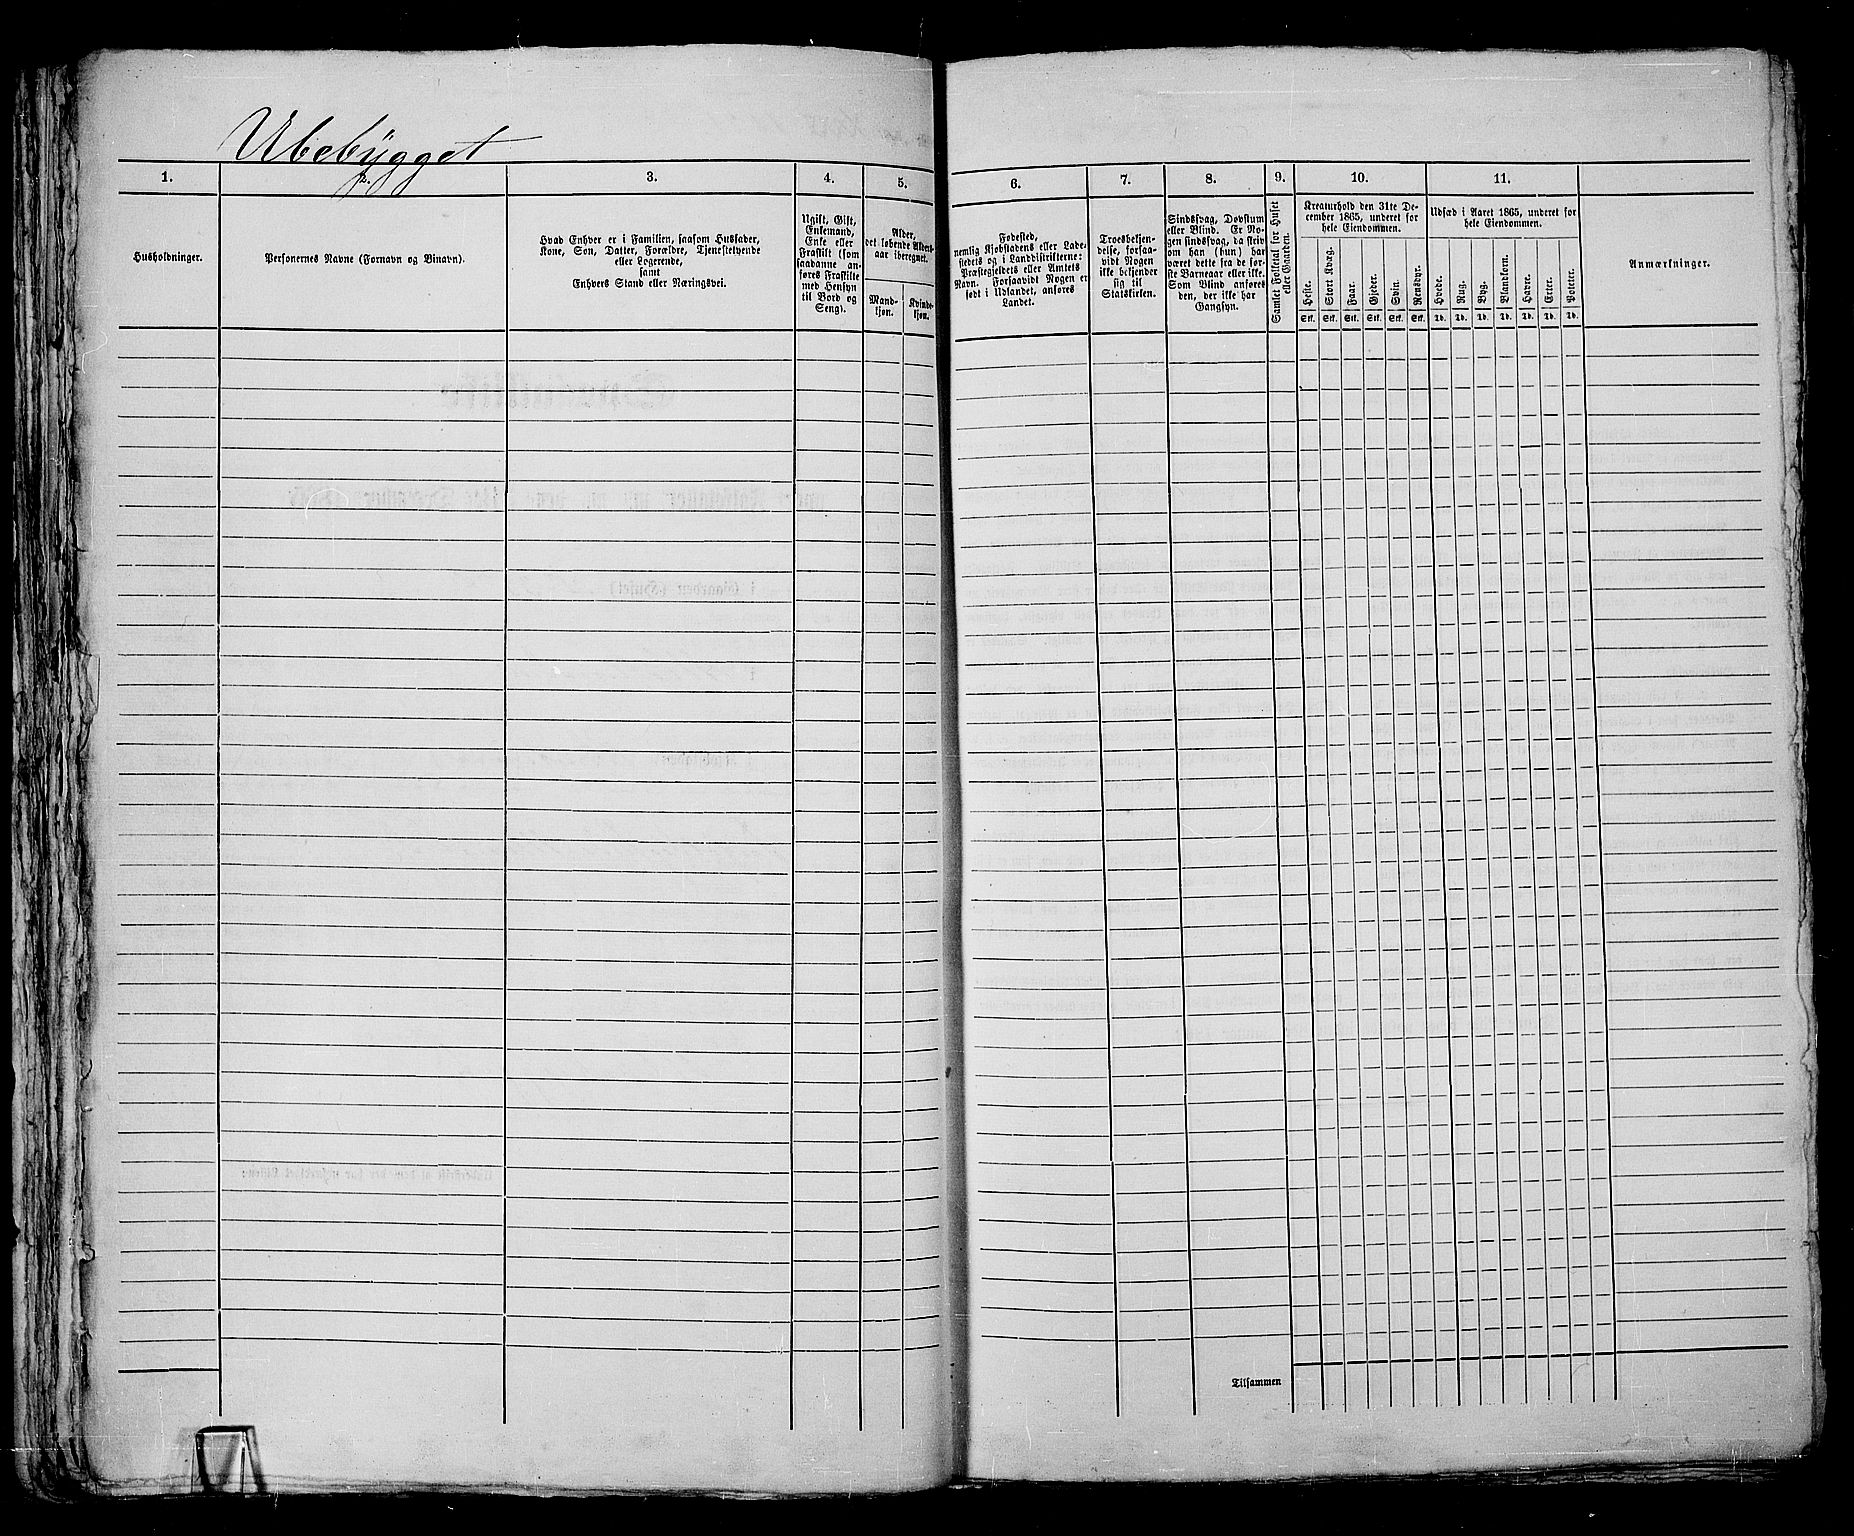 Ubebygget
1.
2.
3.
4.
5.
6.
7.
8.
9.
10.
11.
Husholdninger.
Personernes Navne (Fornavn og Binavn).
Hvad Enhver er i Familien, saasom Husfader,
Kone, Søn, Datter, Forældre, Tjenestetyende
eller Logerende,
samt
Enhvers Stand eller Næringsvei.
Ugift, Gift,
Enkemand,
Enke eller
Fraskilt (som
saadanne an-
føres Fraskilte
med Hensyn
til Bord og
Seng).
Alder,
det løbende Alders-
aar iberegnet.
Mand-
kjøn.
Kvinde-
kjøn.
Fødested,
nemlig Kjøbstadens eller Lade-
stedets og i Landdistrikterne:
Præstegjeldets eller Amtets
Navn. Forsaavidt Nogen er
født i Udlandet, anføres
Landet.
Troesbekjen-
delse, forsaa-
vidt Nogen
ikke bekjender
sig til
Statskirken.
Sindssvag, Døvstum
eller Blind. Er No-
gen sindssvag, da skriv
om han (hun) har
været dette fra de før-
ste Barneaar eller ikke.
Som Blind anføres
den, der ikke har
Gangsyn.
Samlet Folketal for Huset
eller Gaarden.
Kreaturhold den 31te De-
cember 1865, underet for
hele Eiendommen.
Heste.
Stort Kvæg.
Faar.
Gjeder.
Svin.
Rensdyr.
Stk. Stk. Stk. Stk. Stk. Stk.
Udsæd i Aaret 1865, underet for
hele Eiendommen.
Hvede.
Rug.
Byg.
Blandkorn.
Havre.
Erter.
Poteter.
Td. Td. Td. Td. Td. Td. Td.
Anmærkninger.
Tilsammen